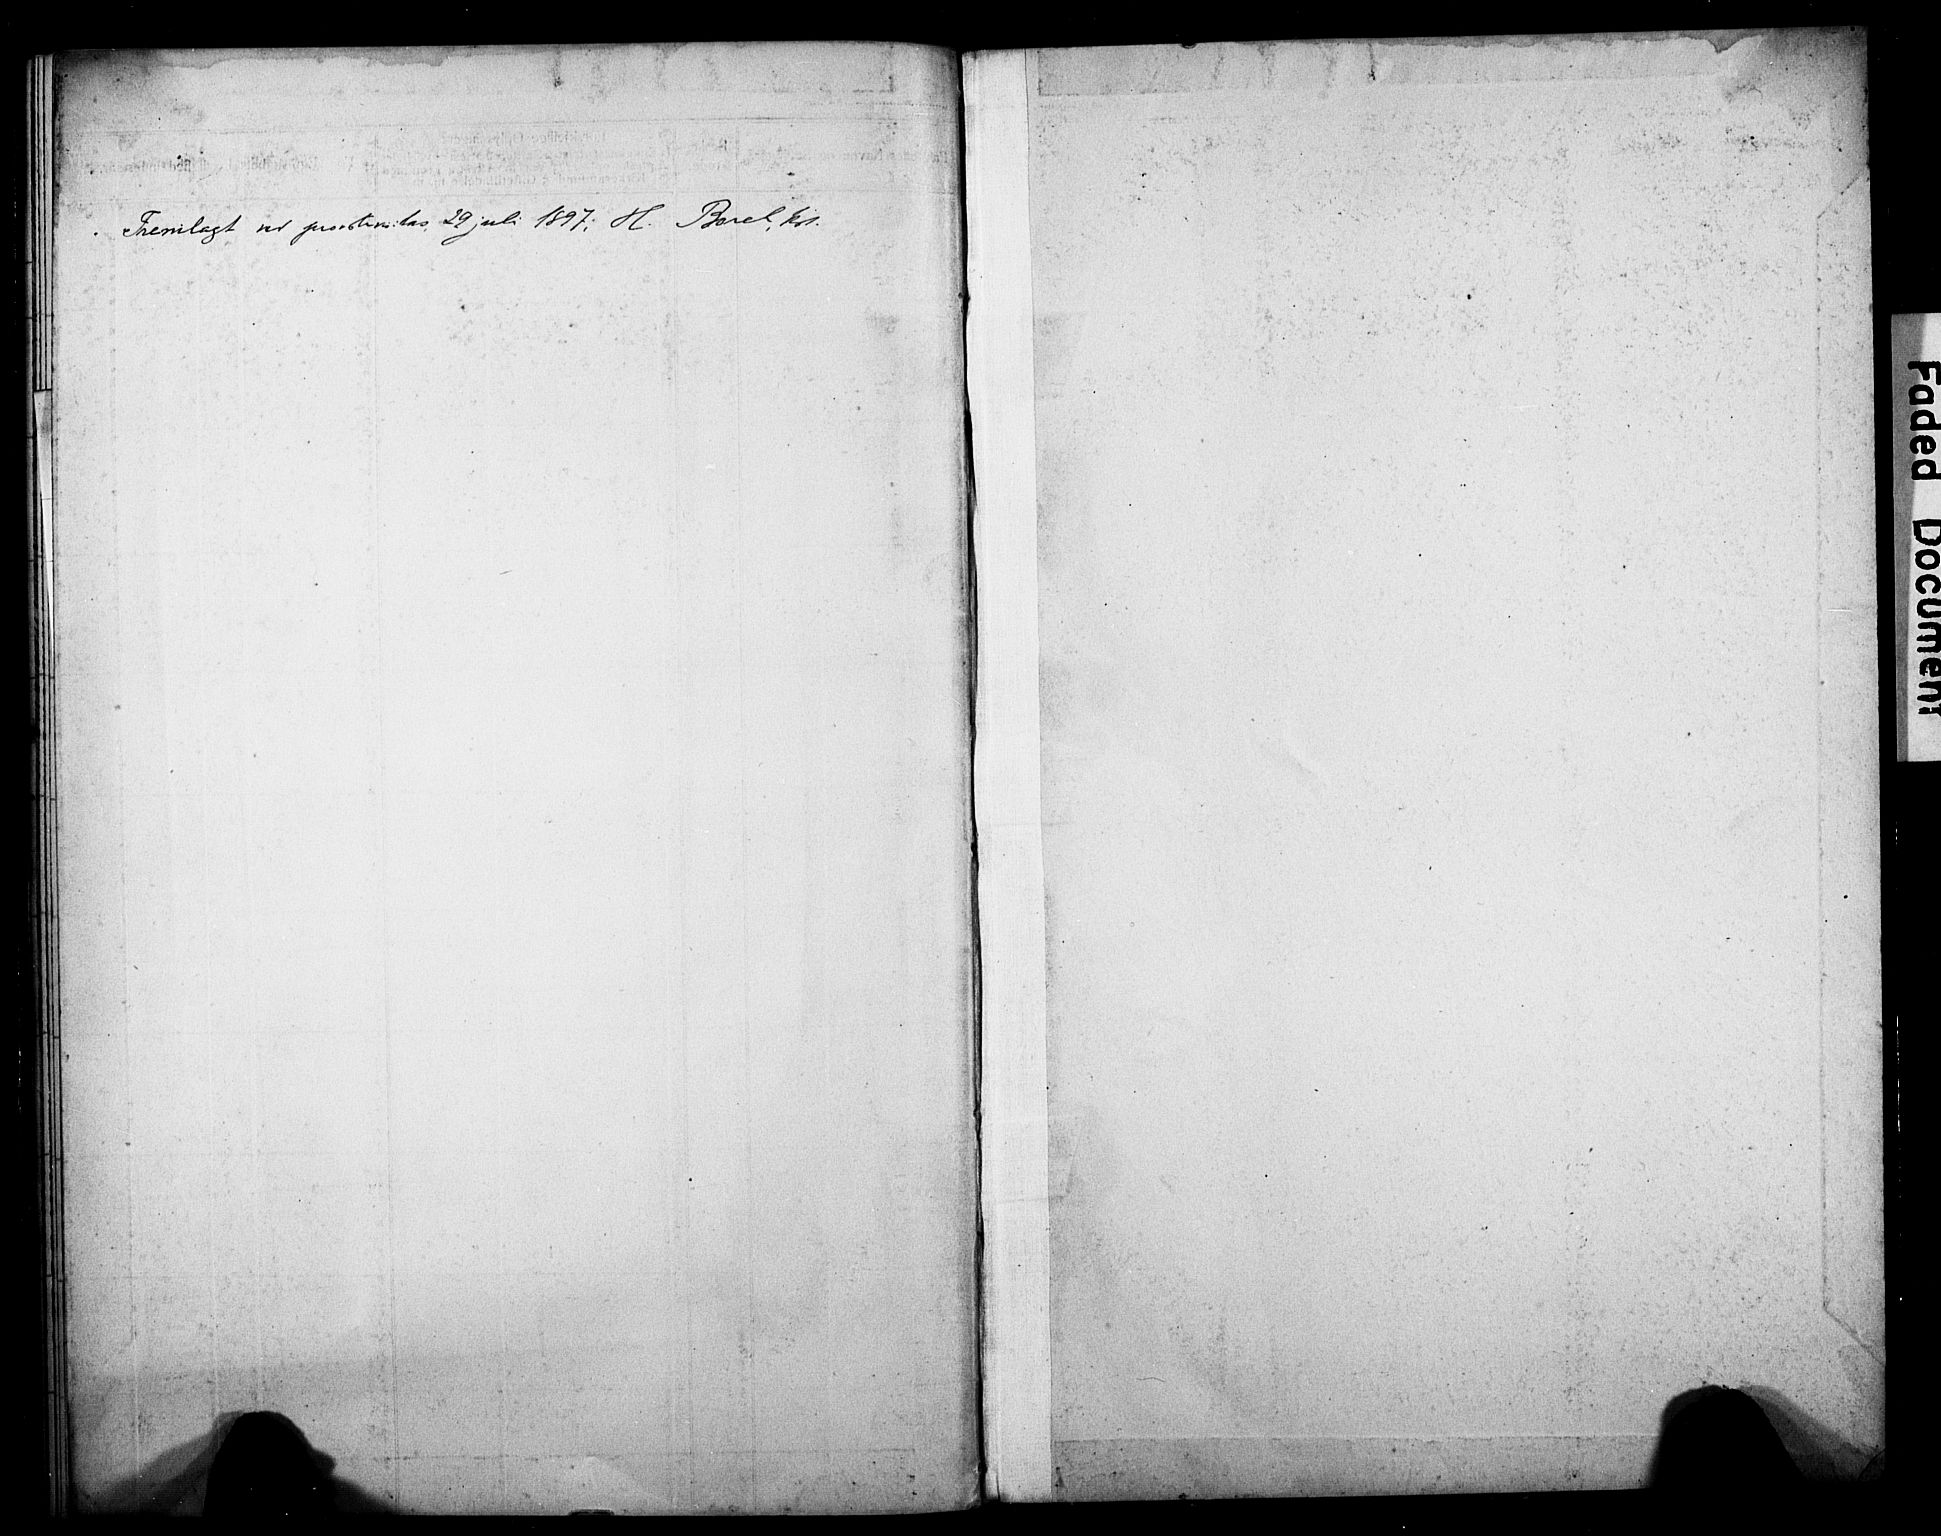 Fremlagt ved provstevisitas, 29 juli 1897; H. Barel, kst.
Faded Document